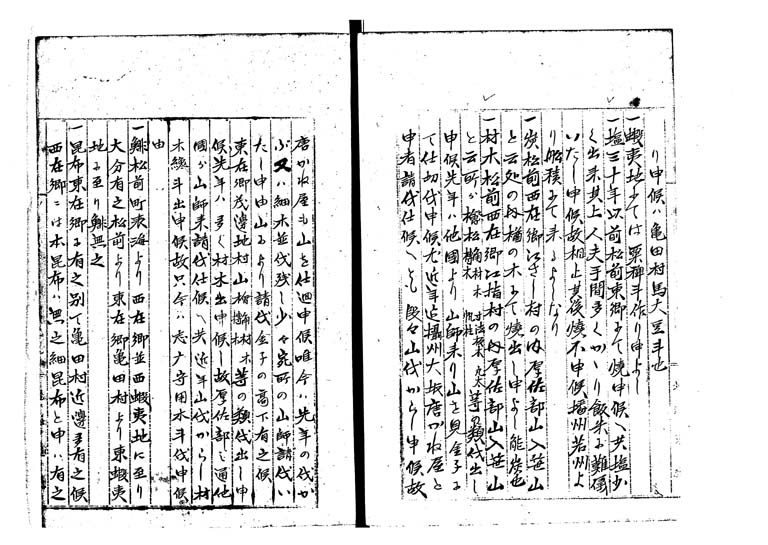 り申候ハ亀田村馬大豆斗也
一蝦夷地ニ而ハ粟稗斗作り申よし
一塩三十年以前松前東郷ニ而焼申候へ共塩少
く出来其上人夫手間多くかゝり飯米ニ難儀
いたし申候故相止其後焼不申候播州若州より
船積ニ而来るよしなり
一炭松前西在郷江さし村の内厚佐部山入笹山
と云処の内楢の木ニ而焼出し申よし能炭也
一材木松前西在郷江指村の内厚佐部山入笹山
と云所が檜松等の類伐出し
申候先年ハ他國より山師来り山を見金子に
て仕切伐申候尤近年迄摂州大坂唐かね屋と
申者請負仕候へとも段々山伐からし申候故
唐かね屋も山を仕廻申候唯今ハ先年の伐か
ぶ又ハ細木並伐残し少々宛所の山師請負い
たし申由山により請負金子の高下有之候
東在郷茂邊地村山檜材木等の類伐出し申
候先年ハ多く材木出申候し故厚佐部之通他
國が山師来請負仕候へ共近年山伐からし材
木纔斗出申候故只今ハ志ゝ守用木斗伐申候
由
一鯡松前町表海より西在郷並西蝦夷地に至り
大分有之松前より東在郷亀田村より東蝦夷
地に至り鯡無之
一昆布東在郷に有之別て亀田村近邊多有之候
西在郷にハ本昆布ハ無之細昆布と申ハ有之